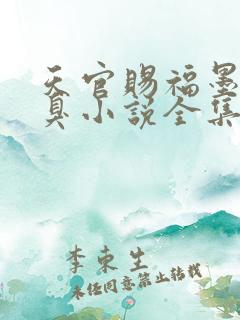 天官赐福墨
真小说全集
李束生
未经同意禁止转载